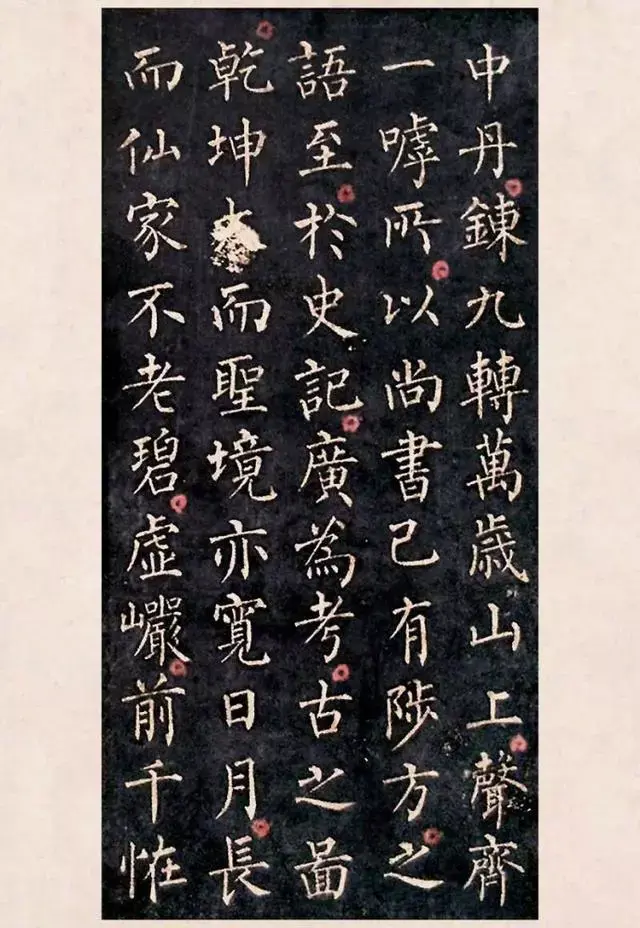 中丹鍊九轉萬歳山上聲齊
一嘑所以尚書已有陟方之
語至於史記廣為考古之啚
乾坤大而聖境亦寬日月長
而仙家不老碧虚巗前千恠